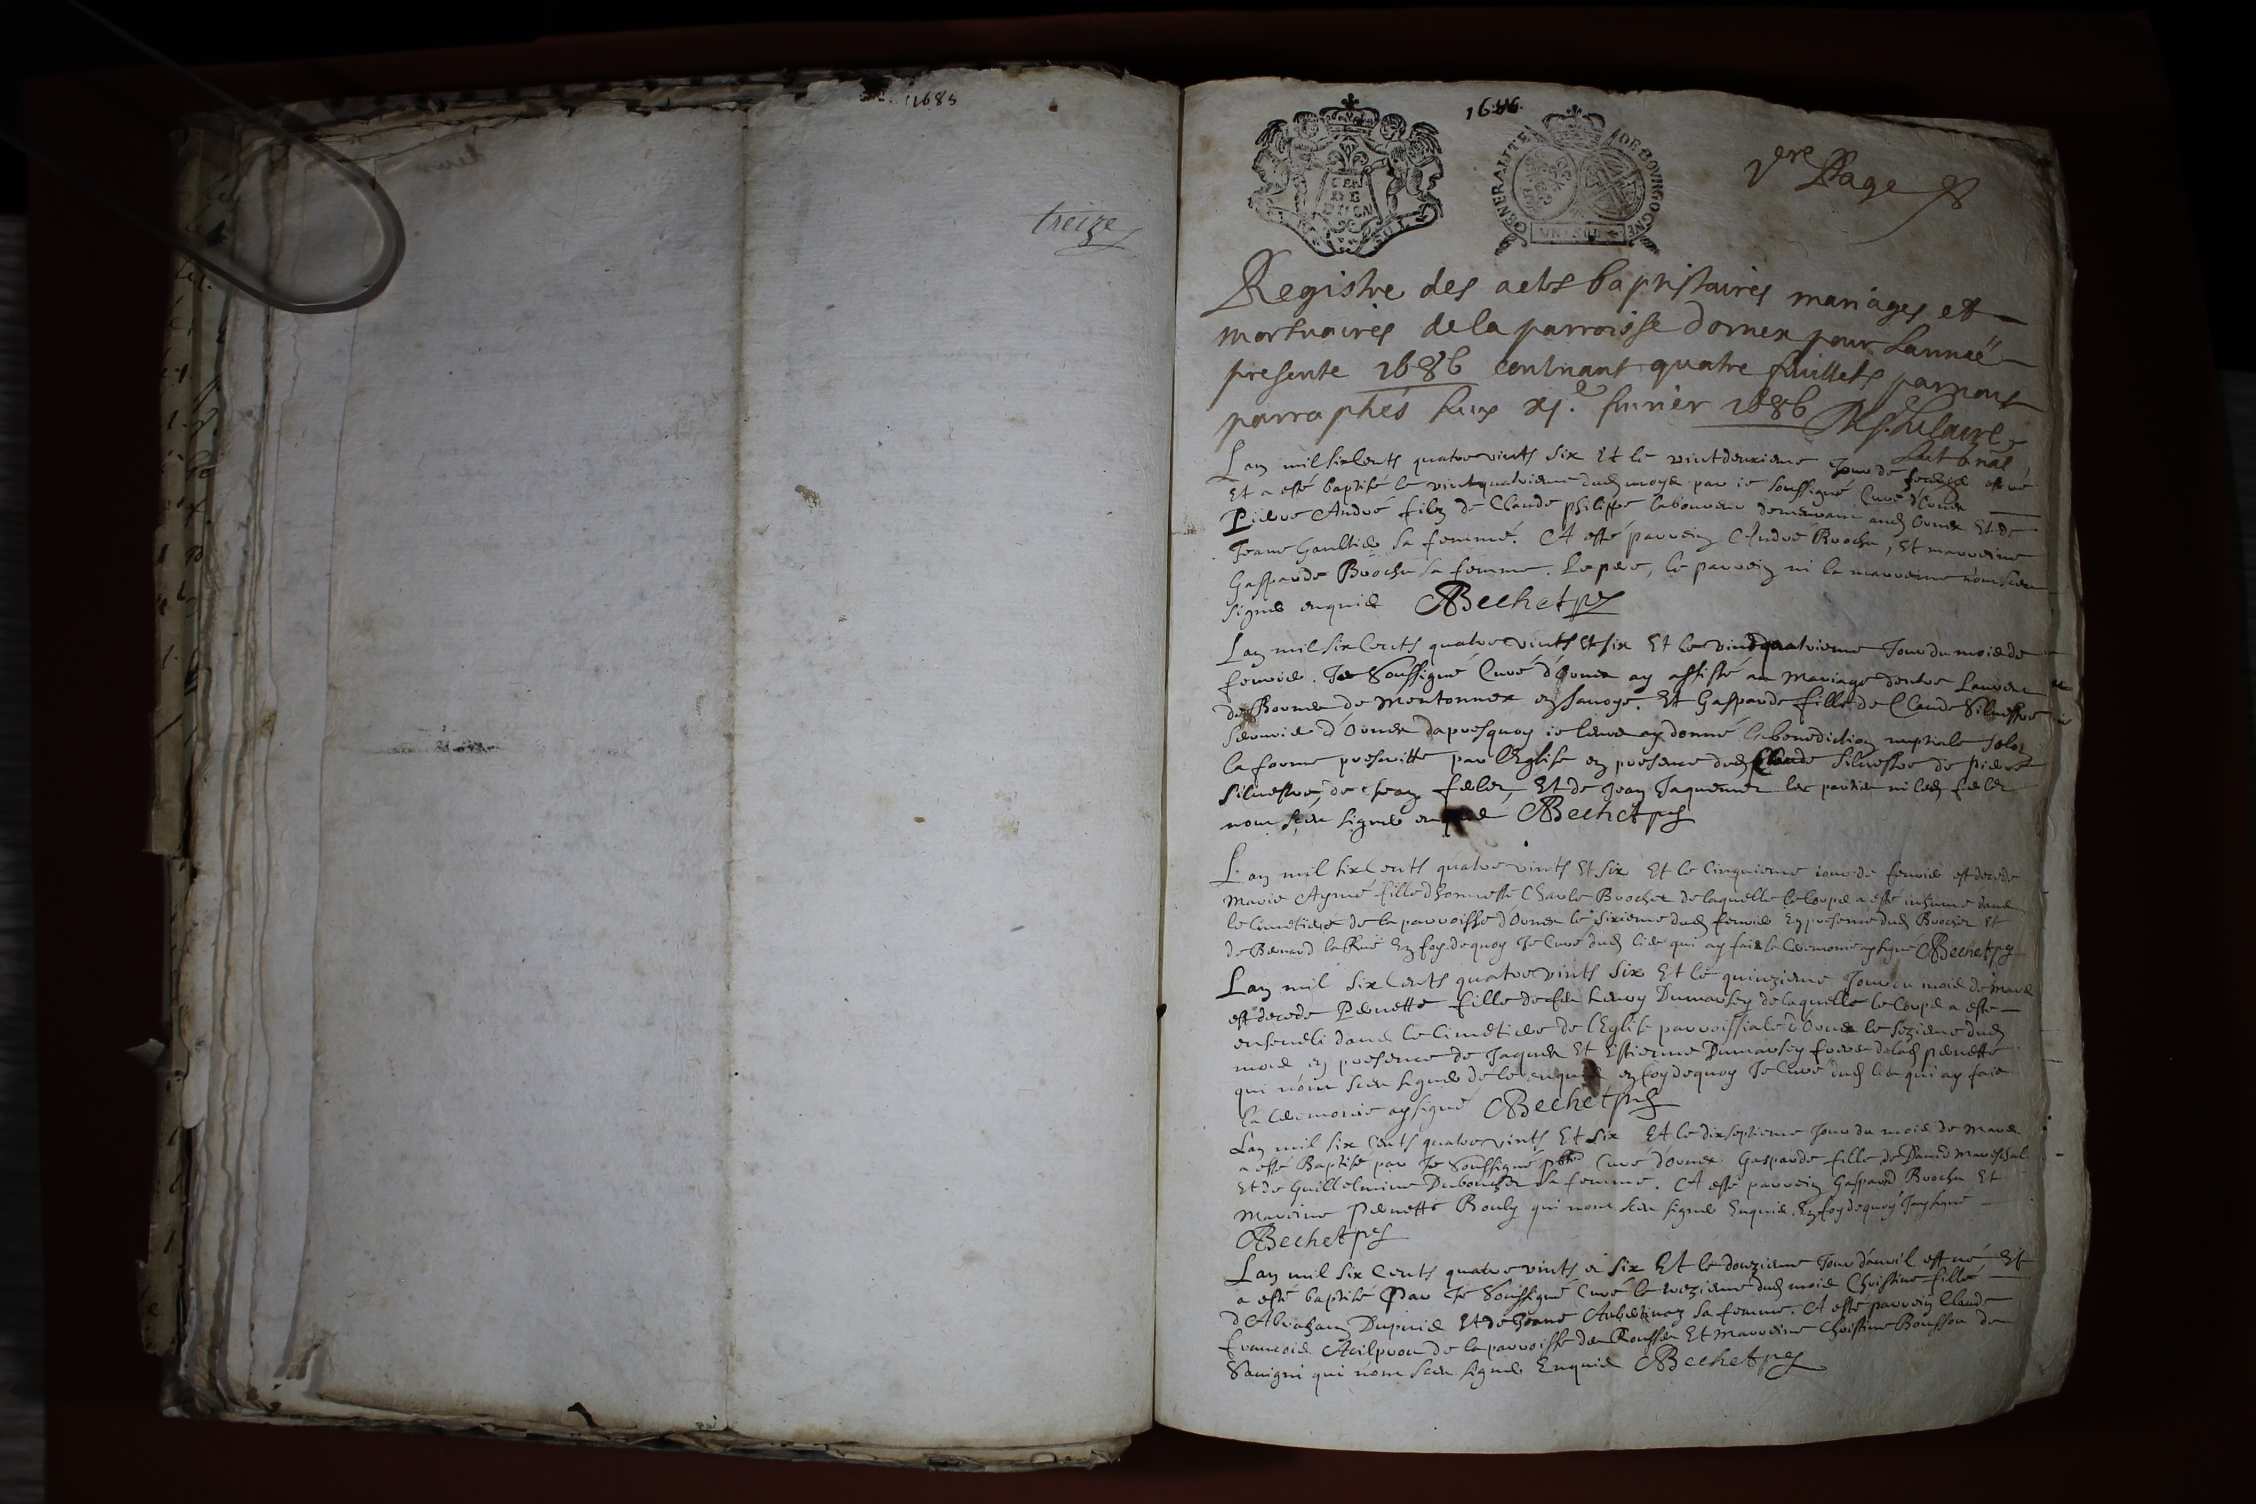 1685
treize
1686
GENERALITE DE BOVRGOGNE
1ere Page
Registre des actes baptistaires mariages et
mortuaires de la parroisse dornex pour lannée
presente 1686 contenant quatre fuillets par nous
parraphés xj.e feurier 1686
Lan mil six Cents quatre vints six Et le vintdeuxieme Jour de est né
Et a esté baptisé le vintquatrieme dud moys par ie soussigné Curé d'Ornex
Pierre André filz de Claude philippe laboureur demeurant aud Ornex Et de
Jeanne Gaultier sa femme. A esté parrein André Brochu, Et marreine
Gasparde Brochu sa femme. Le pere, le parrein ni la marreine n'ont sceu
signer enquis CBechet pr
Lan mil six Cents quatre vints Et six Et le vintquatrieme Jour du mois de
feurier. Je Soussigné Curé d'Ornex ay assisté au Mariage dentre Laurent
de Mentonnex en sauoye. Et Gasparde fille de Claude Siluestre
d'Ornex dapresquoy ie leur ay donné la benediction nuptiale selon
la forme prescritte par l'Eglise en presence dud Claude Siluestre de pierre
Siluestre, de Et de Jean Jaquemet les parties ni led
nont sceu signer CBechet pr
Lan mil six Cents quatre vints Et six Et le Cinquieme iour de feurier est decede
Marie Aymé fille dhonneste Charle Brochet de laquelle le Corps a esté inhumé dans
le Cimetiere de la parroisse d'Ornex le sixieme dud feurier En presence dud Brochet Et
de Bernard la Rue En foy de quoy Je Curé dud lieu qui ay fait la Ceremonie ay signé CBechet pr
Lan mil six Cents quatre vints six Et le quinzieme Jour du mois de Mars
est decede Pernette fille de feu Dumarsey de laquelle le Corps a esté
enseueli dans le Cimetiere de l'Eglise parroissiale d'Ornex le sezieme dud
mois en presence de Jaques Et Estienne Dumarsey freres de lad pernette
qui n'ont sceu signer de ce enquis en foy de quoy Je Curé dud lieu qui ay fait
la Ceremonie ay signé CBechet pr
Lan mil six Cents quatre vints Et six Et le dixseptieme Jour du mois de Mars
a esté Baptisé par Je Soussigné Curé d'ornex Gasparde fille de Dauid Mareschal
Et de Guillelmine Dubouchet sa femme. A esté parrein Gaspard Brochu Et
Mareine Pernette Bouly qui n'ont sceu signer Enquis. En foy de quoy J'ay signé
CBechet pr
Lan mil six Cents quatre vints et six Et le douzieme Jour d'auril est né Et
a esté baptisé Par Je Soussigné Curé le trezieme dud mois Christine fille
d'Abraham Dupuis Et de Jeane sa femme. A esté parrein Claude
francois de la parroisse de Et Marreine Christine Bousson de
Sauigni qui n'ont sceu signer Enquis CBechet pr